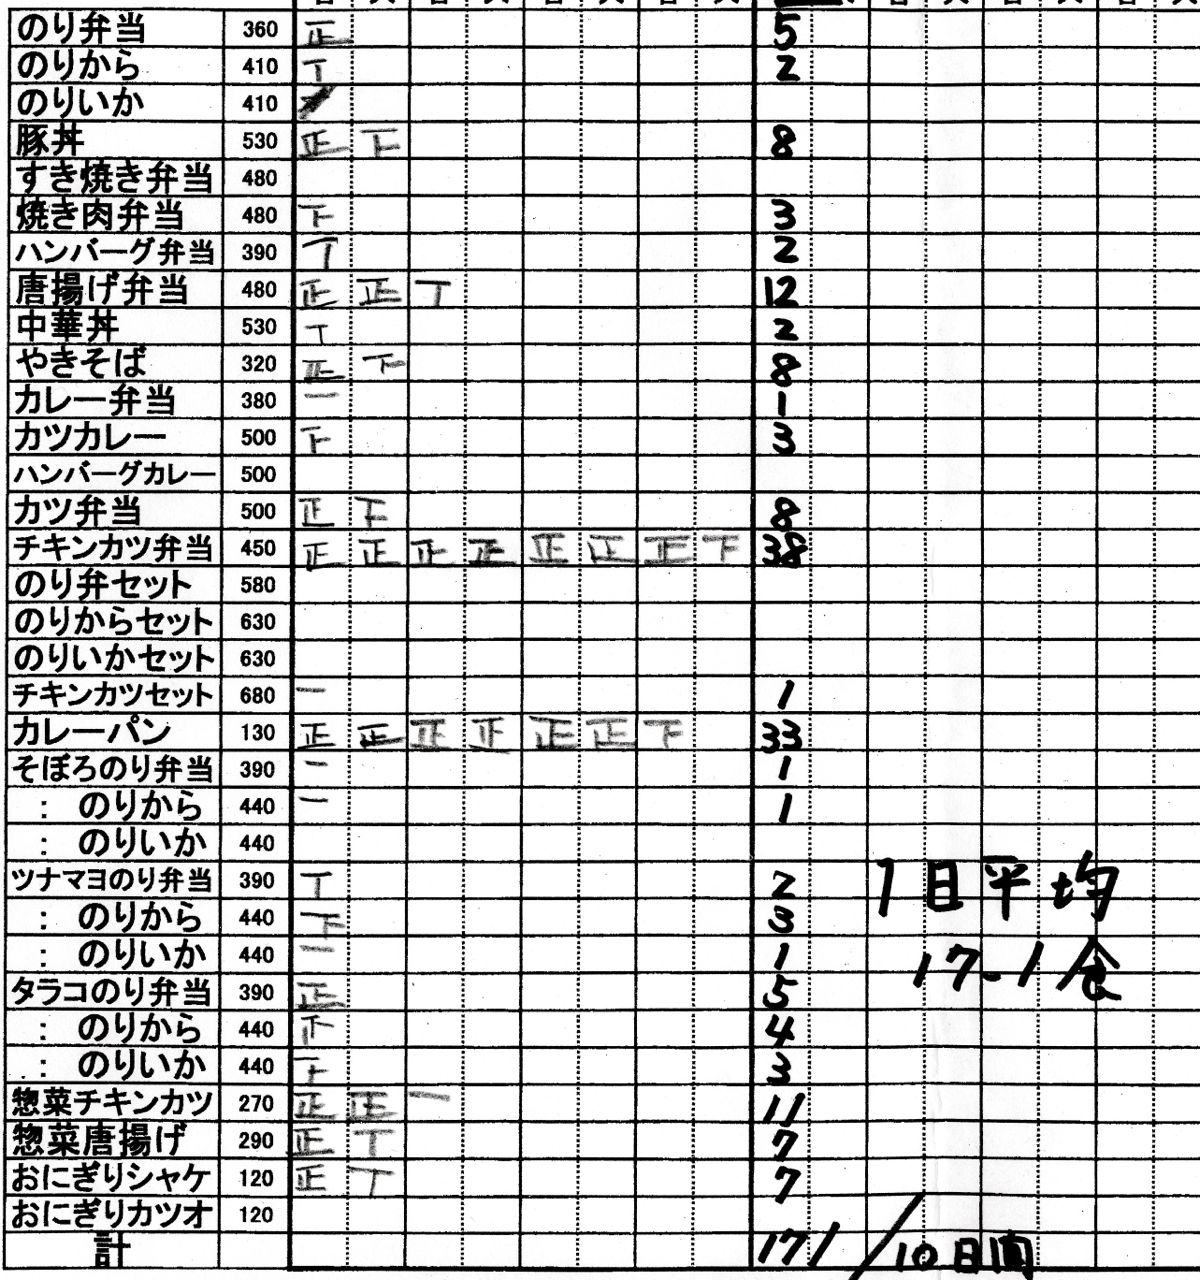 のり弁当 360 正 5
のりから 410 T 2
のりいか 410
豚丼 530 正 下 8
すき焼き弁当 480
焼き肉弁当 480 下 3
ハンバーグ弁当 390 T 2
唐揚げ弁当 480 正 正 T 12
中華丼 530 T 2
やきそば 320 正 下 8
カレー弁当 380 一 1
カツカレー 500 下 3
ハンバーグカレー 500
カツ弁当 500 正 下 8
チキンカツ弁当 450 正 正 正 正 正 正 正 下 38
のり弁セット 580
のりからセット 630
のりいかセット 630
チキンカツセット 680 一 1
カレーパン 130 正 正 正 正 正 正 下 33
そぼろのり弁当 390 一 1
: のりから 440 一 1
: のりいか 440
ツナマヨのり弁当 390 T 2
: のりから 440 下 3
: のりいか 440 一 1
タラコのり弁当 390 正 5
: のりから 440 下 4
: のりいか 440 下 3
惣菜チキンカツ 270 正 正 一 11
惣菜唐揚げ 290 正 T 7
おにぎりシャケ 120 正 T 7
おにぎりカツオ 120
計 171/10日間
1日平均
17.1食